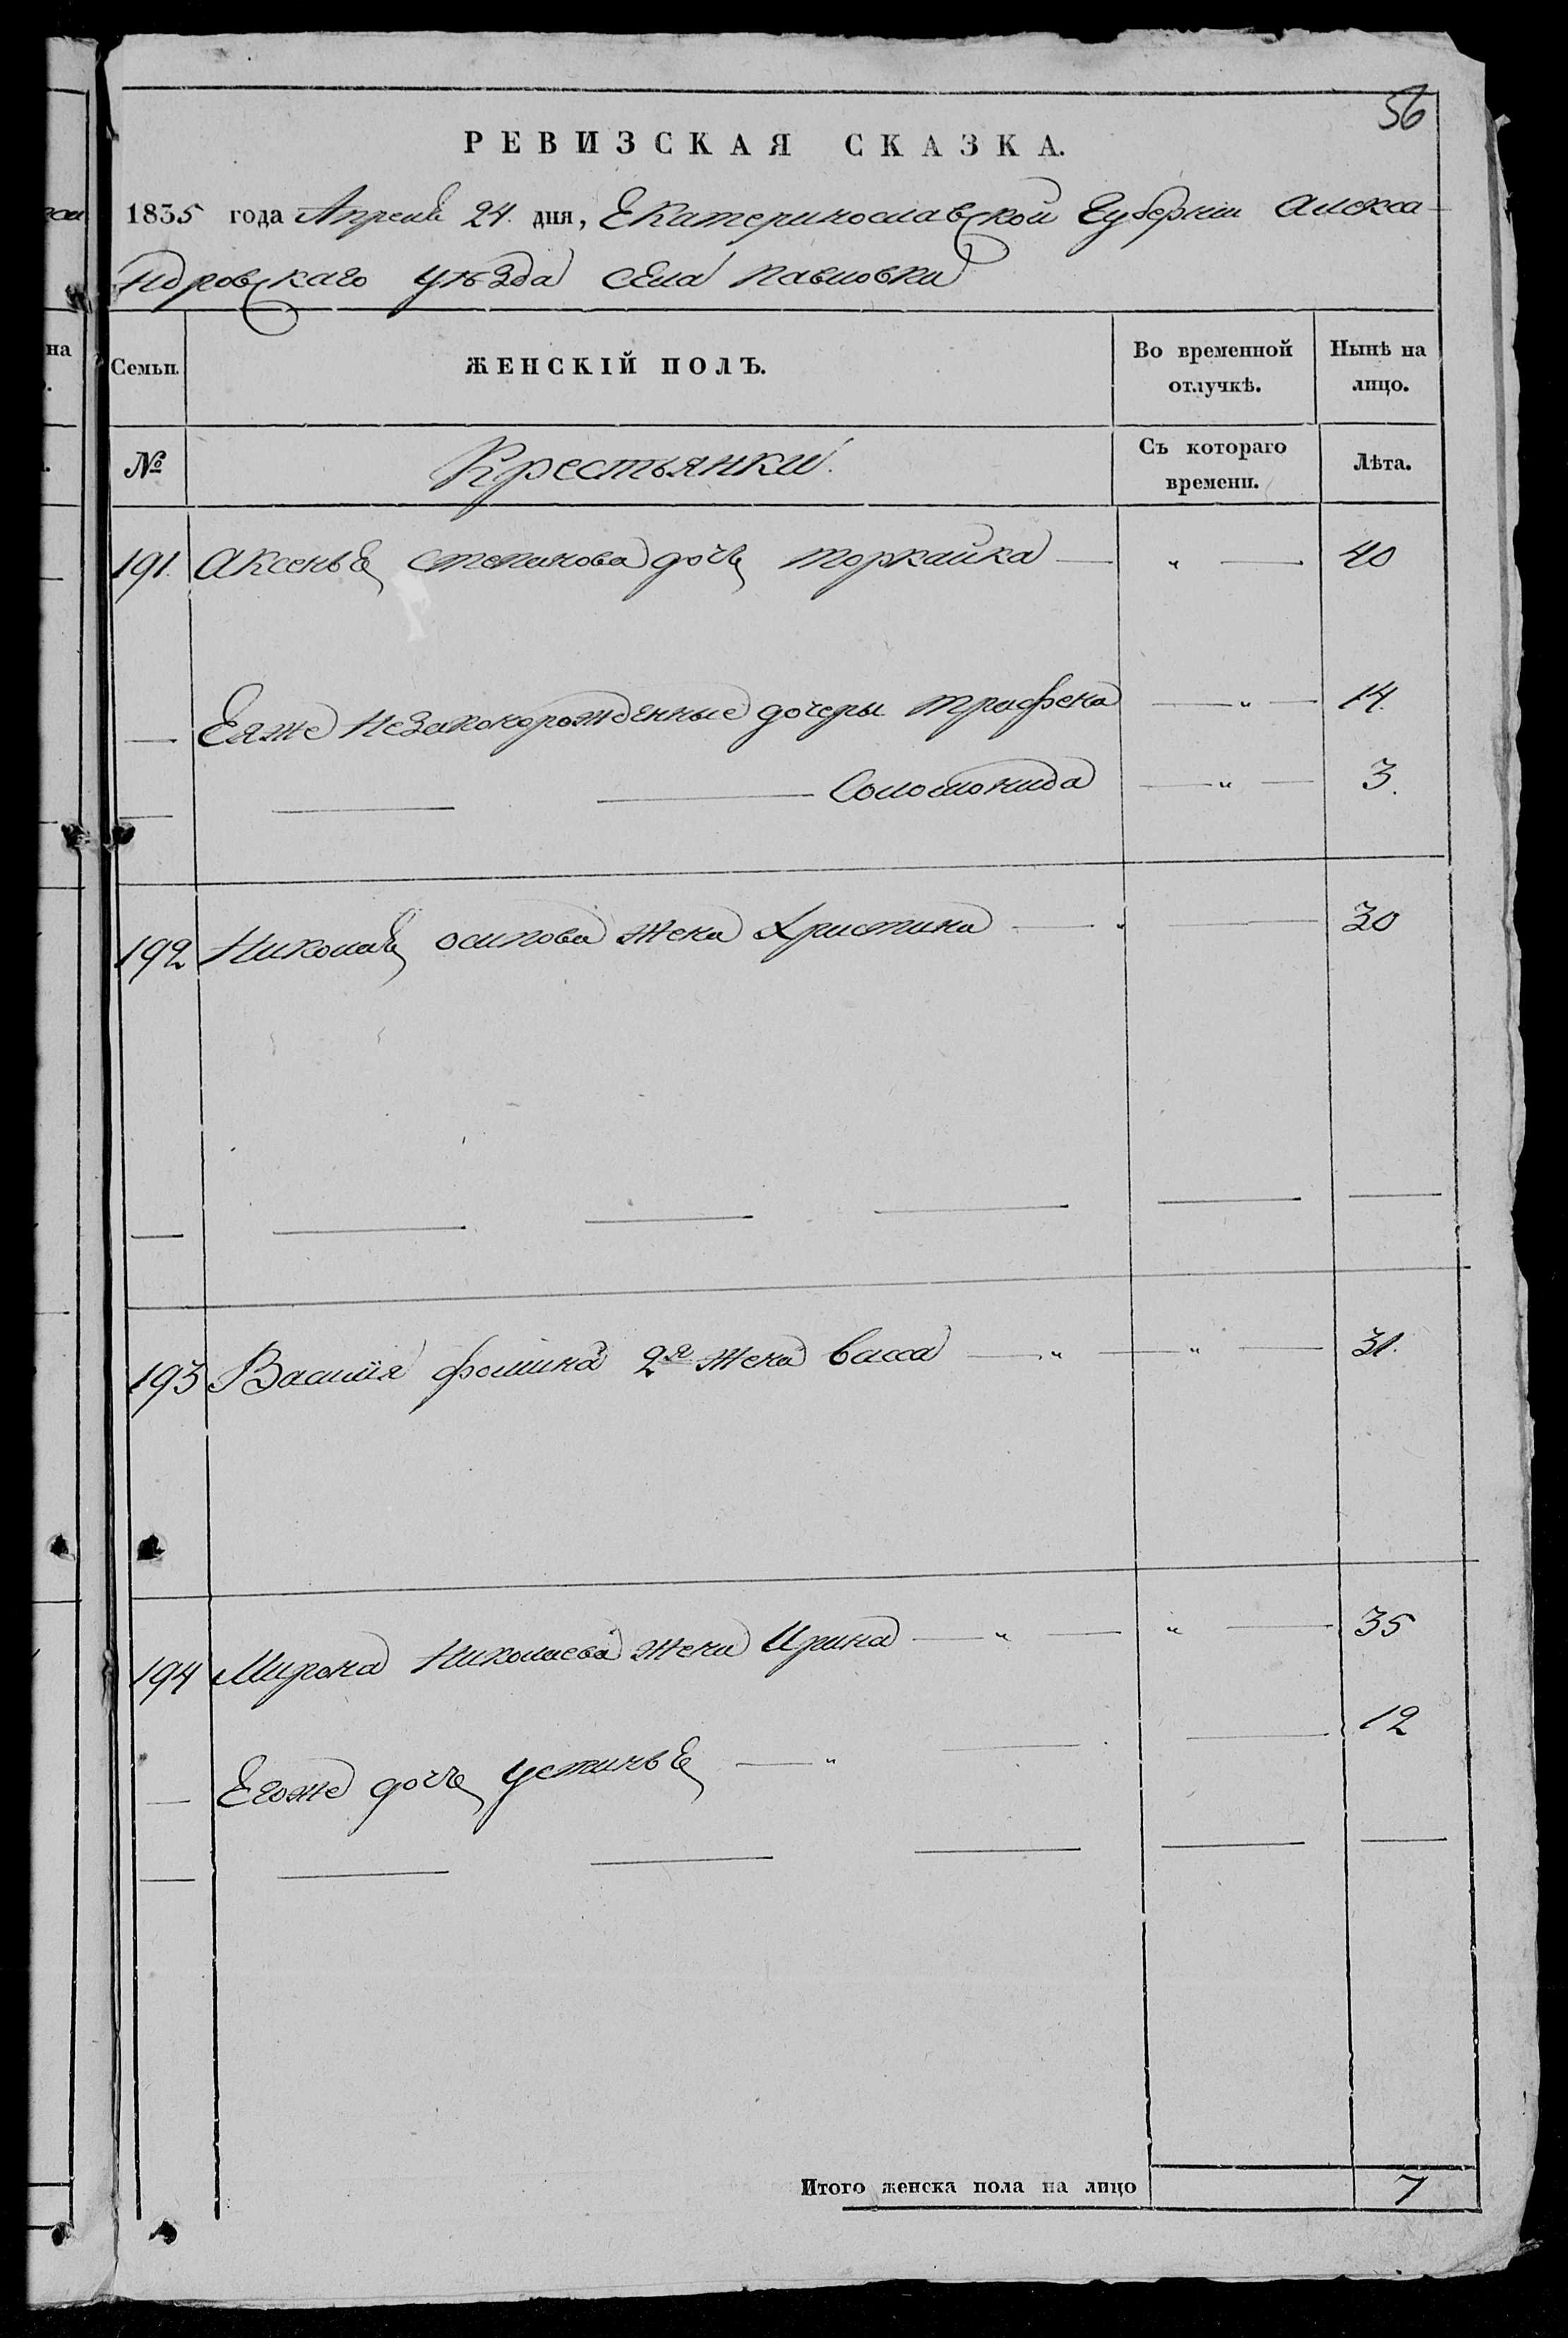 56
РЕВИЗСКАЯ СКАЗКА.
1835 года Апреля 24. дня, Екатеринославской Губернiи Алекса-
ндровскаго уѣзда села Павловки
Семьи. ЖЕНСКIЙ ПОЛЪ. Во временной отлучкѣ. Нынѣ на лицо.
№ Крестьянки. Съ котораго времени. Лѣта.
191. Аксенья Степанова дочь — " — 40
— Еяже незаконорожденные дочеры Трифена — " — 14.
— — — Соломонида — " — 3.
192 Николая Осипова жена Христина — " — 30
193 Василiя Фомина 2я жена Васса — " — " — 31.
194 Мирона Николаева жена Ирина — " — " — 35
— Егоже дочь Устинья — " — — 12
Итого женска пола на лицо 7
на